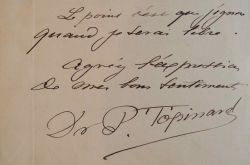 Le pire c'est que j'ignore
quand je serai libre.
Agréez l'expression
de mes bons sentiments
Dr P. Topinard